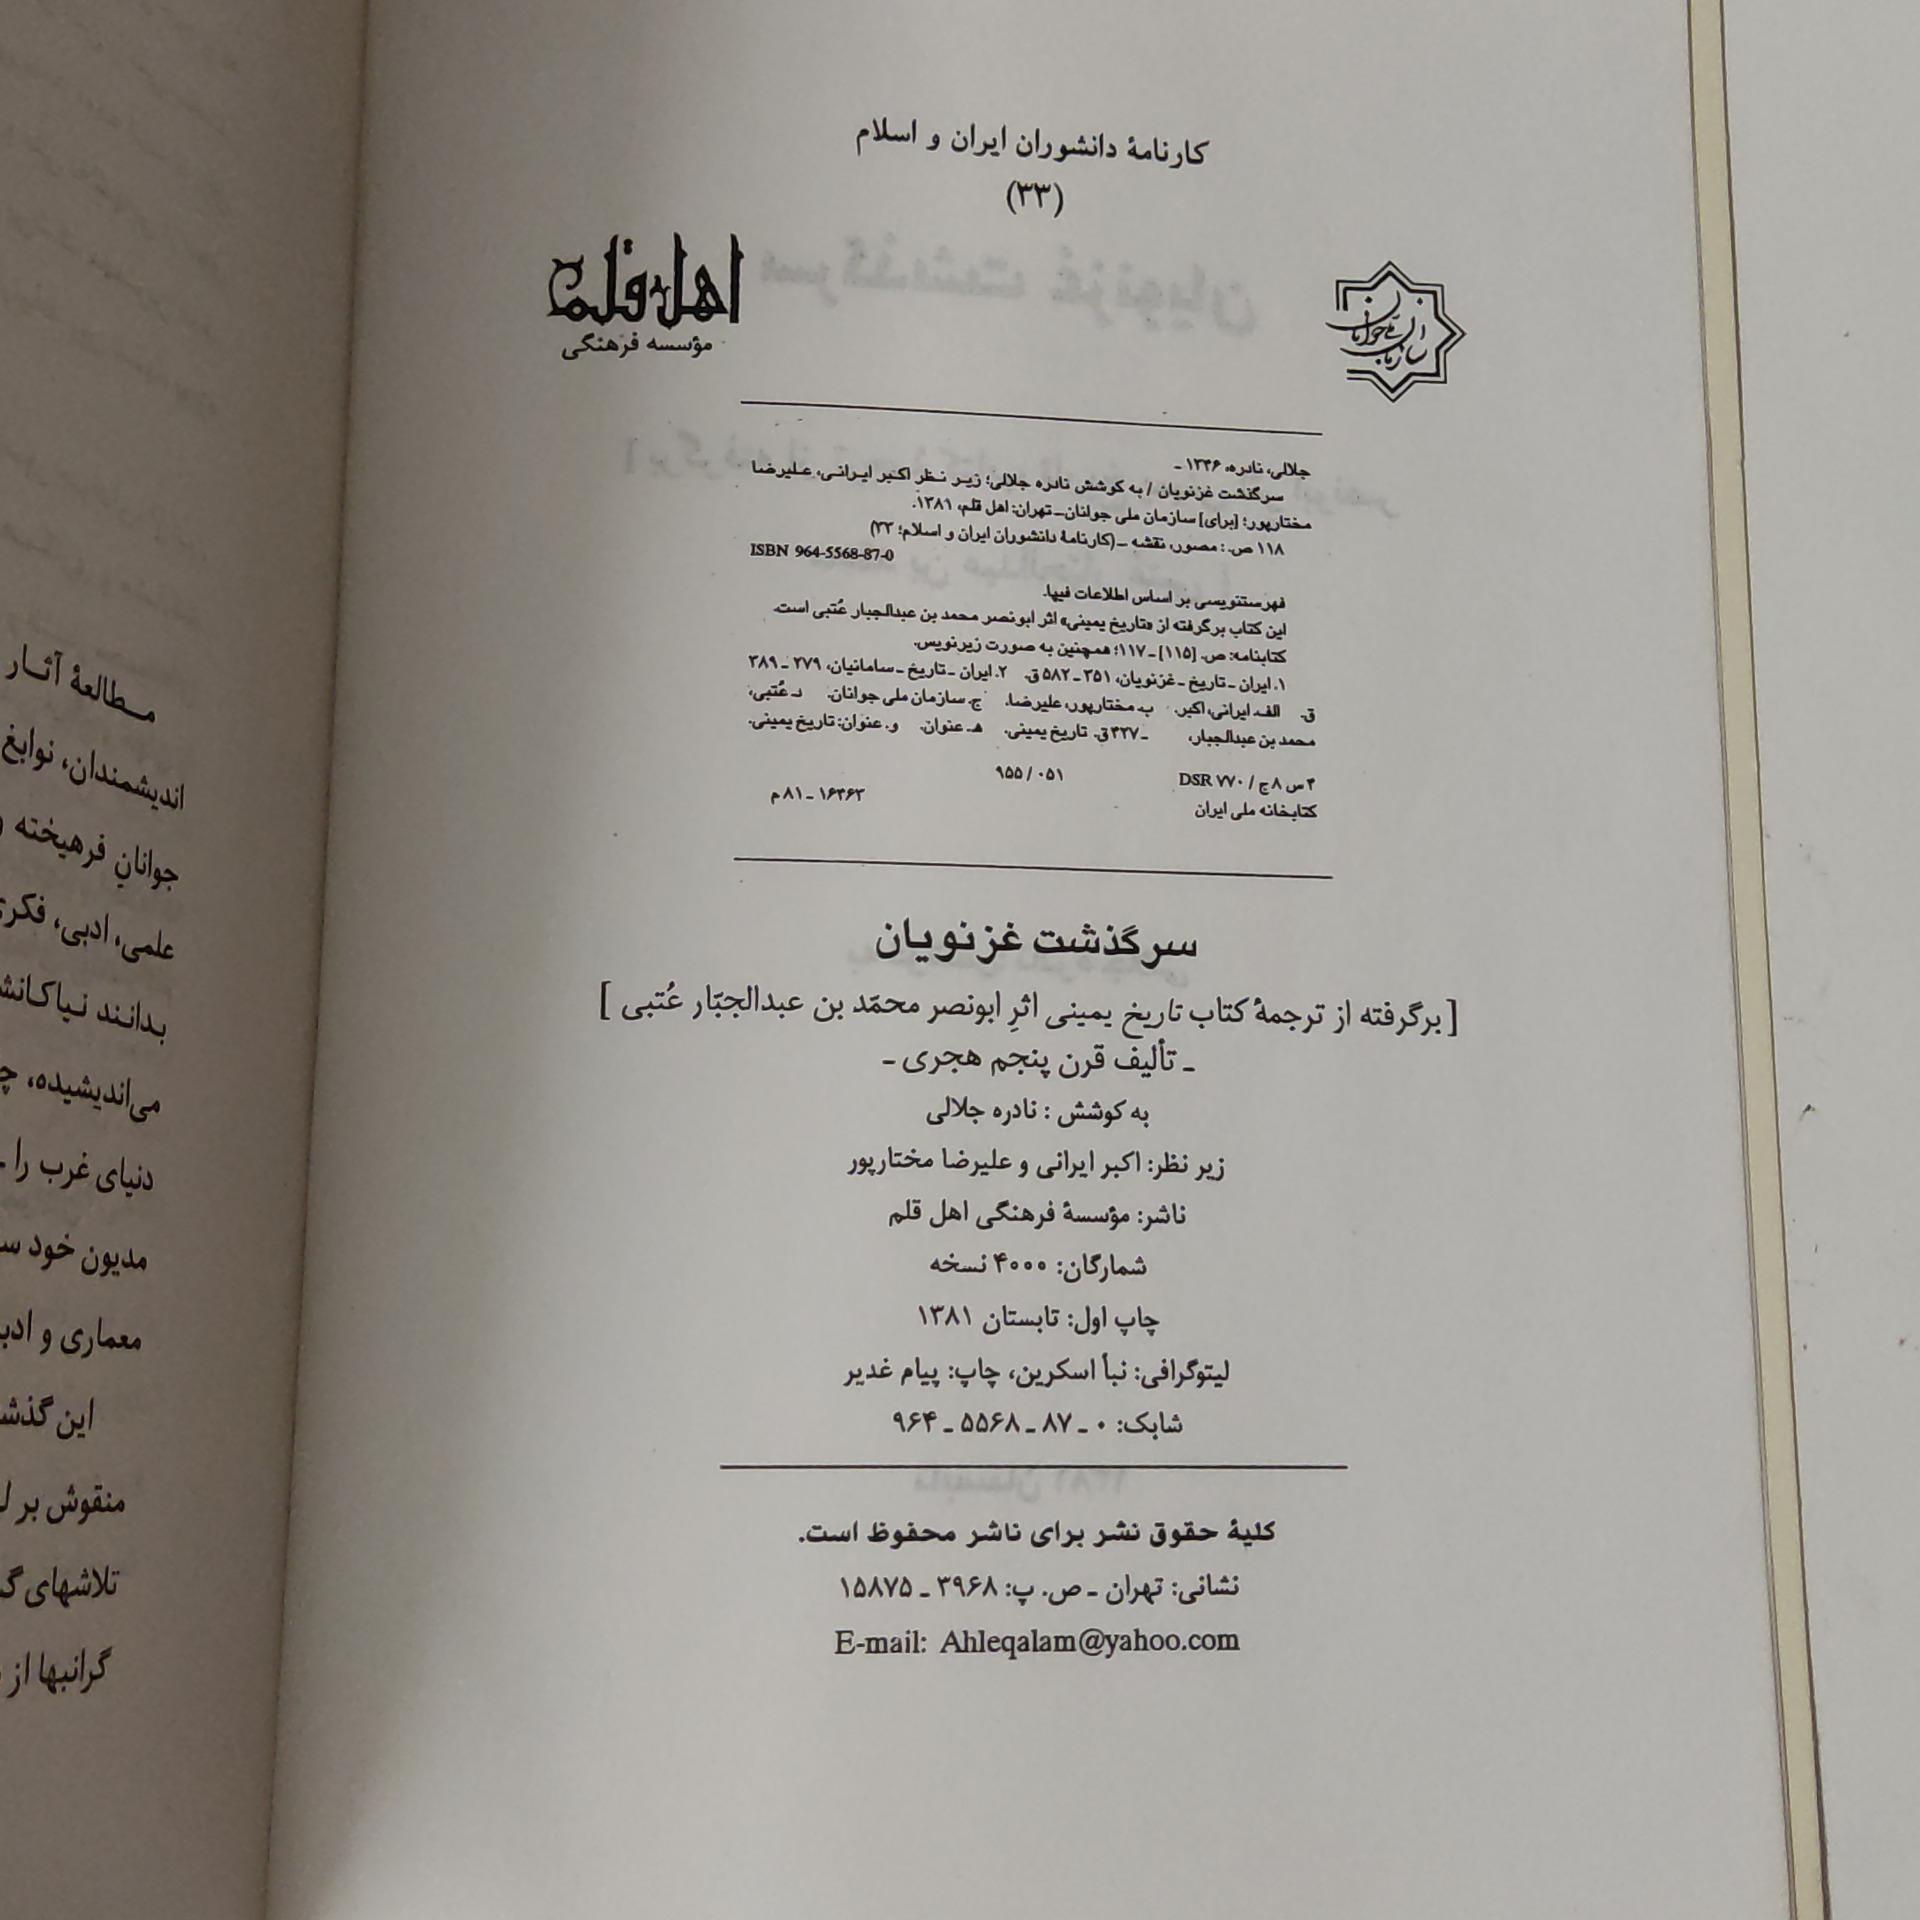 کارنامهٔ دانشوران ایران و اسلام
(۳۳)
اهل قلم
مؤسسه فرهنگی
سازمان ملی جوانان
جلالی، نادره، ۱۳۴۶ ـ
سرگذشت غزنویان / به کوشش نادره جلالی؛ زیر نظر اکبر ایرانی، علیرضا
مختارپور؛ [برای] سازمان ملی جوانان ـ تهران: اهل قلم، ۱۳۸۱.
۱۱۸ ص. : مصور، نقشه ـ (کارنامهٔ دانشوران ایران و اسلام؛ ۳۳)
ISBN 964-5568-87-0
فهرستنویسی بر اساس اطلاعات فیپا.
این کتاب برگرفته از «تاریخ یمینی» اثر ابونصر محمد بن عبدالجبار عُتبی است.
کتابنامه: ص. [۱۱۵] ـ ۱۱۷؛ همچنین به صورت زیرنویس.
۱. ایران ـ تاریخ ـ غزنویان، ۳۵۱ ـ ۵۸۲ ق. ۲. ایران ـ تاریخ ـ سامانیان، ۲۷۹ ـ ۳۸۹
ق. الف. ایرانی، اکبر. ب. مختارپور، علیرضا. ج. سازمان ملی جوانان. د. عُتبی،
محمد بن عبدالجبار، ـ ۴۲۷ ق. تاریخ یمینی. ه‍. عنوان. و. عنوان: تاریخ یمینی.
۴ س ۸ ج / ۷۷۰ DSR ۹۵۵ / ۰۵۱
کتابخانه ملی ایران ۱۶۳۶۳ ـ ۸۱ م
سرگذشت غزنویان
[ برگرفته از ترجمهٔ کتاب تاریخ یمینی اثرِ ابونصر محمّد بن عبدالجبّار عُتبی ]
ـ تألیف قرن پنجم هجری ـ
به کوشش : نادره جلالی
زیر نظر: اکبر ایرانی و علیرضا مختارپور
ناشر: مؤسسهٔ فرهنگی اهل قلم
شمارگان: ۴۰۰۰ نسخه
چاپ اول: تابستان ۱۳۸۱
لیتوگرافی: نبأ اسکرین، چاپ: پیام غدیر
شابک: ۰ ـ ۸۷ ـ ۵۵۶۸ ـ ۹۶۴
کلیهٔ حقوق نشر برای ناشر محفوظ است.
نشانی: تهران ـ ص. پ: ۳۹۶۸ ـ ۱۵۸۷۵
E-mail: Ahleqalam@yahoo.com
مطالعهٔ آثار
اندیشمندان، نوابغ
جوانانِ فرهیخته
علمی، ادبی،
بدانند
می‌اندیشیده،
دنیای غرب را
مدیون خود
معماری و
این
منقوش بر
تلاشهای
گرانبها از